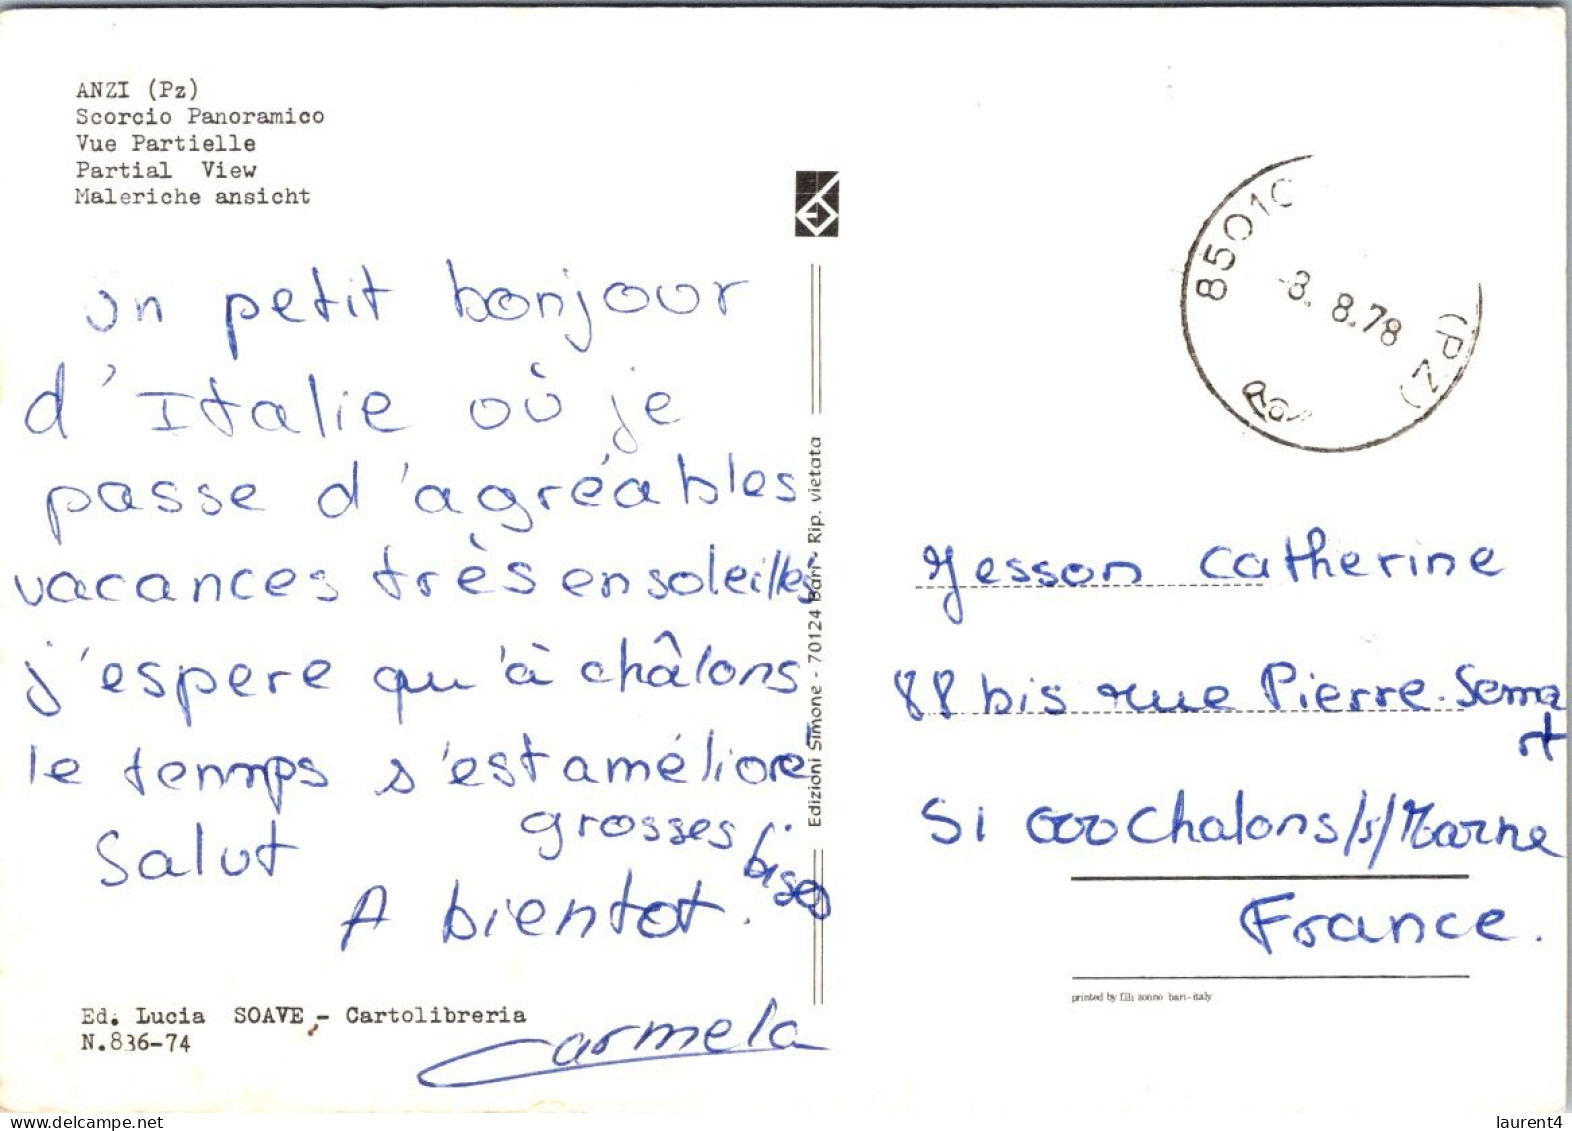 ANZI (Pz)
Scorcio Panoramico
Vue Partielle
Partial View
Maleriche ansicht
un petit bonjour
d'Italie où je
passe d'agréables
vacances très ensoleillés
j'espere qu'à châlons
le temps s'est améliore
grosses bises
Salut
A bientot.
Carmela
Ed. Lucia SOAVE - Cartolibreria
N.836-74
Edizioni Simone - 70124 Bari - Rip. vietata
85010
-8. 8.78
(PZ)
Jesson Catherine
88 bis rue Pierre-Semart
51 000 Chalons/s/Marne
France.
printed by f.lli sonno bari-italy
laurent4